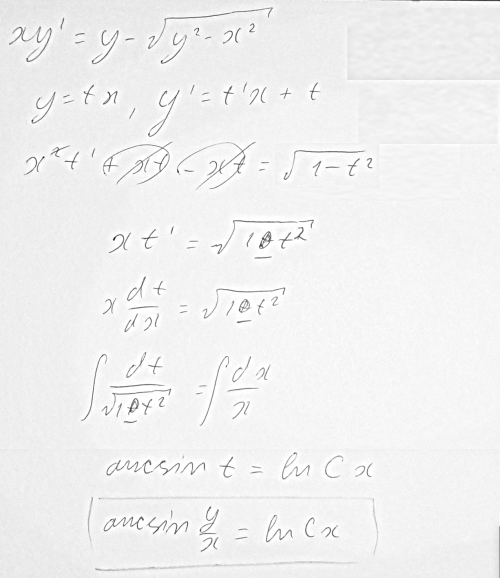 xy' = y - √(y² - x²)
y = tx, y' = t'x + t
x²t' + xt - xt = √(1 - t²)
xt' = √(1 - t²)
x dt/dx = √(1 - t²)
∫ dt/√(1 - t²) = ∫ dx/x
arcsin t = ln Cx
arcsin y/x = ln Cx